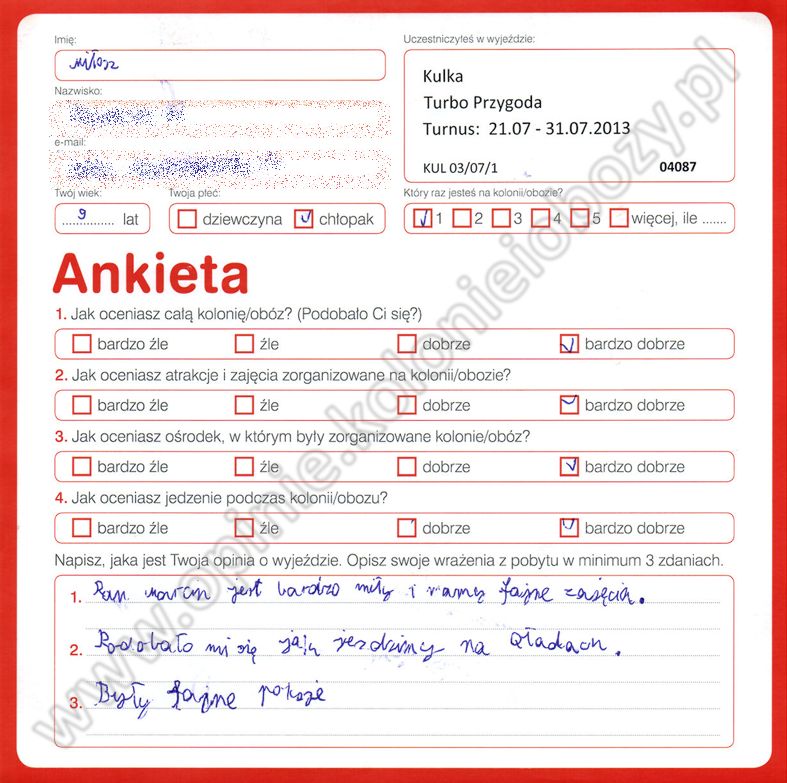 Imię:
Miłosz
Uczestniczyłeś w wyjeździe:
Kulka
Turbo Przygoda
Turnus: 21.07 - 31.07.2013
KUL 03/07/1 04087
Nazwisko:
e-mail:
Twój wiek:
9 lat
Twoja płeć:
dziewczyna chłopak
Który raz jesteś na kolonii/obozie?
1 2 3 4 5 więcej, ile .......
Ankieta
1. Jak oceniasz całą kolonię/obóz? (Podobało Ci się?)
bardzo źle źle dobrze bardzo dobrze
2. Jak oceniasz atrakcje i zajęcia zorganizowane na kolonii/obozie?
bardzo źle źle dobrze bardzo dobrze
3. Jak oceniasz ośrodek, w którym były zorganizowane kolonie/obóz?
bardzo źle źle dobrze bardzo dobrze
4. Jak oceniasz jedzenie podczas kolonii/obozu?
bardzo źle źle dobrze bardzo dobrze
Napisz, jaka jest Twoja opinia o wyjeździe. Opisz swoje wrażenia z pobytu w minimum 3 zdaniach.
1. Pan marcin jest bardzo miły i mamy fajne zajęcia.
2. Podobało mi się jak jezdzimy na Qładach.
3. Były fajne pokoje
www.opinie.kolonieiobozy.pl